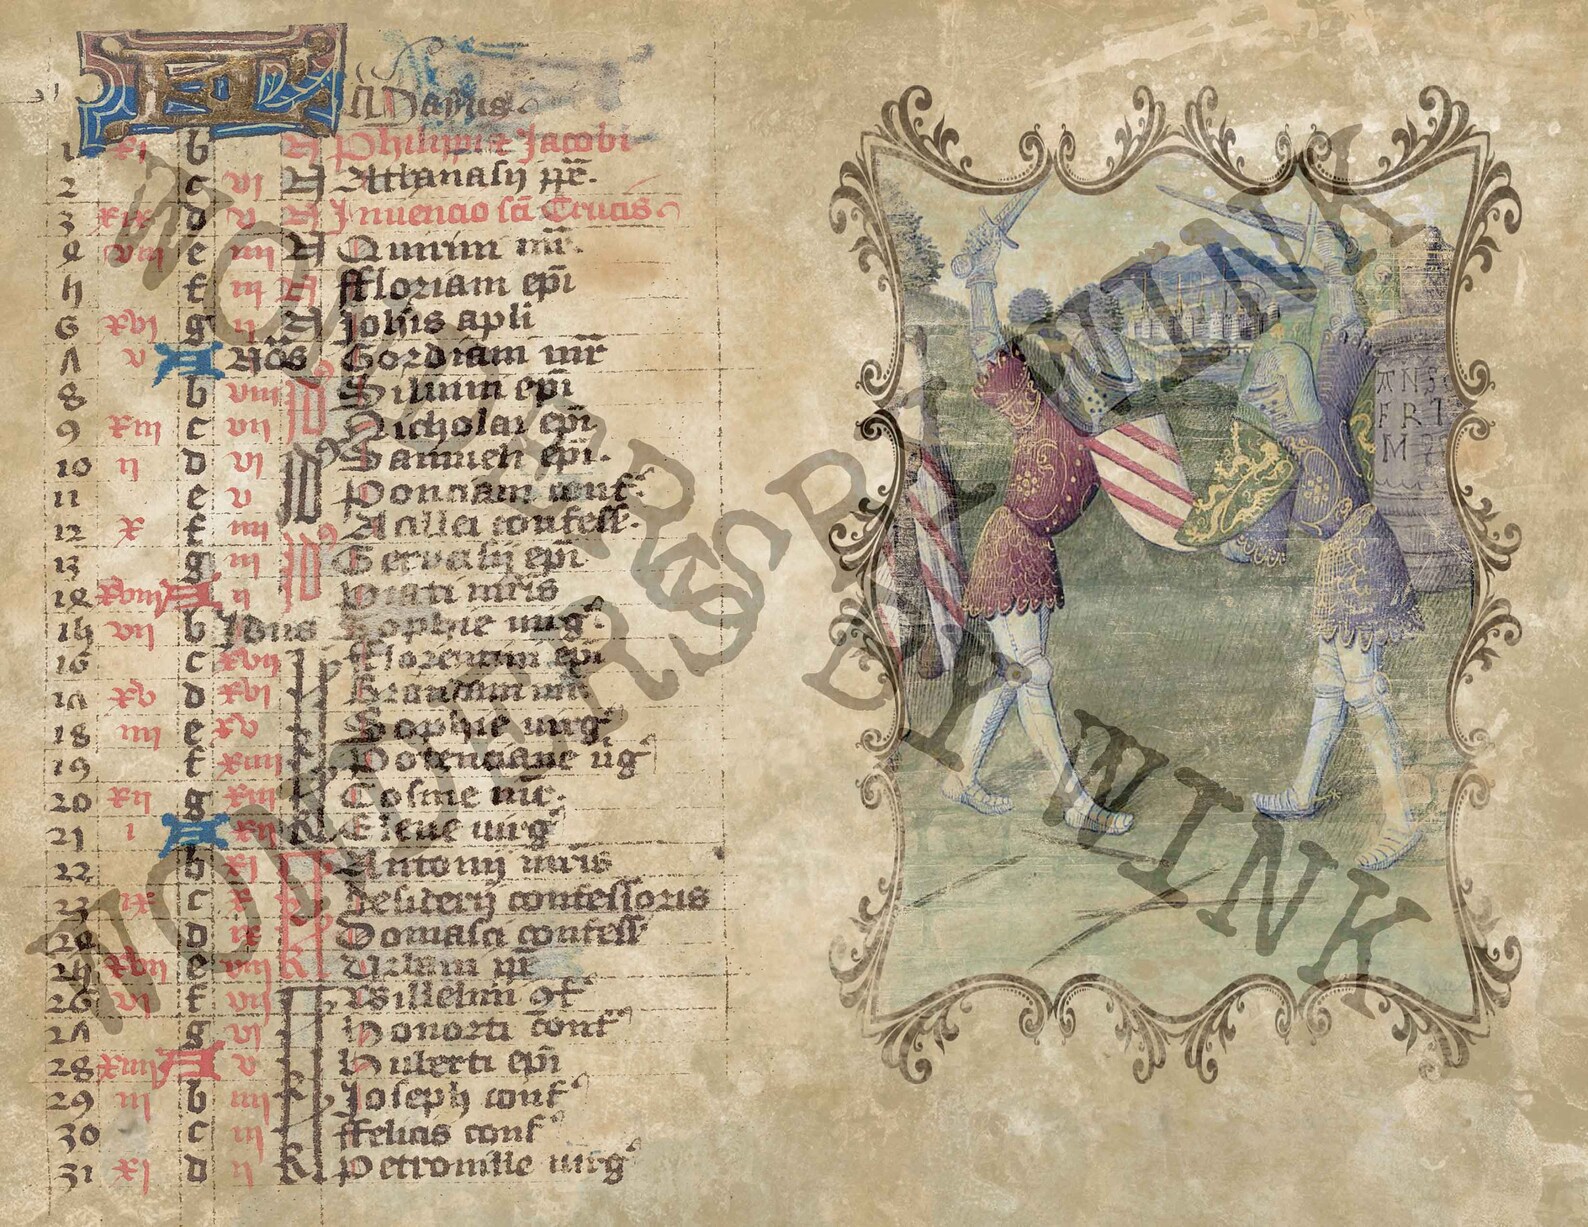 KL Mayus
1 xi b A Philippi & Jacobi
2 c vi A Athanasij pp̄e.
3 xix d v A Inuencio sc̄ā Crucis
4 viii e iiii A Quirini mr̄
5 f iii A ffloriani ep̄i
6 xvi g ii A Johīs apli
7 v A Nōs Gordiani mr̄
8 b viii Id9 Siluini ep̄i
9 xiii c vii Nicholai ep̄i
10 ii d vi Id9 ep̄i.
11 e v Ponciani conf
12 x f iiii Acillei confess.
13 g iii Id9 Geruasij ep̄i
14 xviii A ii mr̄is
15 vii b Idus Sophie uirg
16 c xvii fflorentini ep̄i
17 xv d xvi Brandani
18 iiii e xv Sophie uirg
19 f xiiii Potenciane uḡ
20 xii g xiii Cosme mr̄.
21 i A xii kl Elene uirg
22 b xi Antonij mr̄is
23 ix c x Desiderij confessoris
24 d ix Domasci confess
25 xvii e viii kl Urbani pp̄e
26 vi f vii Willelmi 9f
27 g vi Honorti conf
28 xiiii A v Huberti ep̄i
29 iii b iiii Joseph conf
30 c iii ffelicis conf
31 xi d ii kl Petronille uirg
FRI
WONDERS BY WINK
WONDERS BY WINK